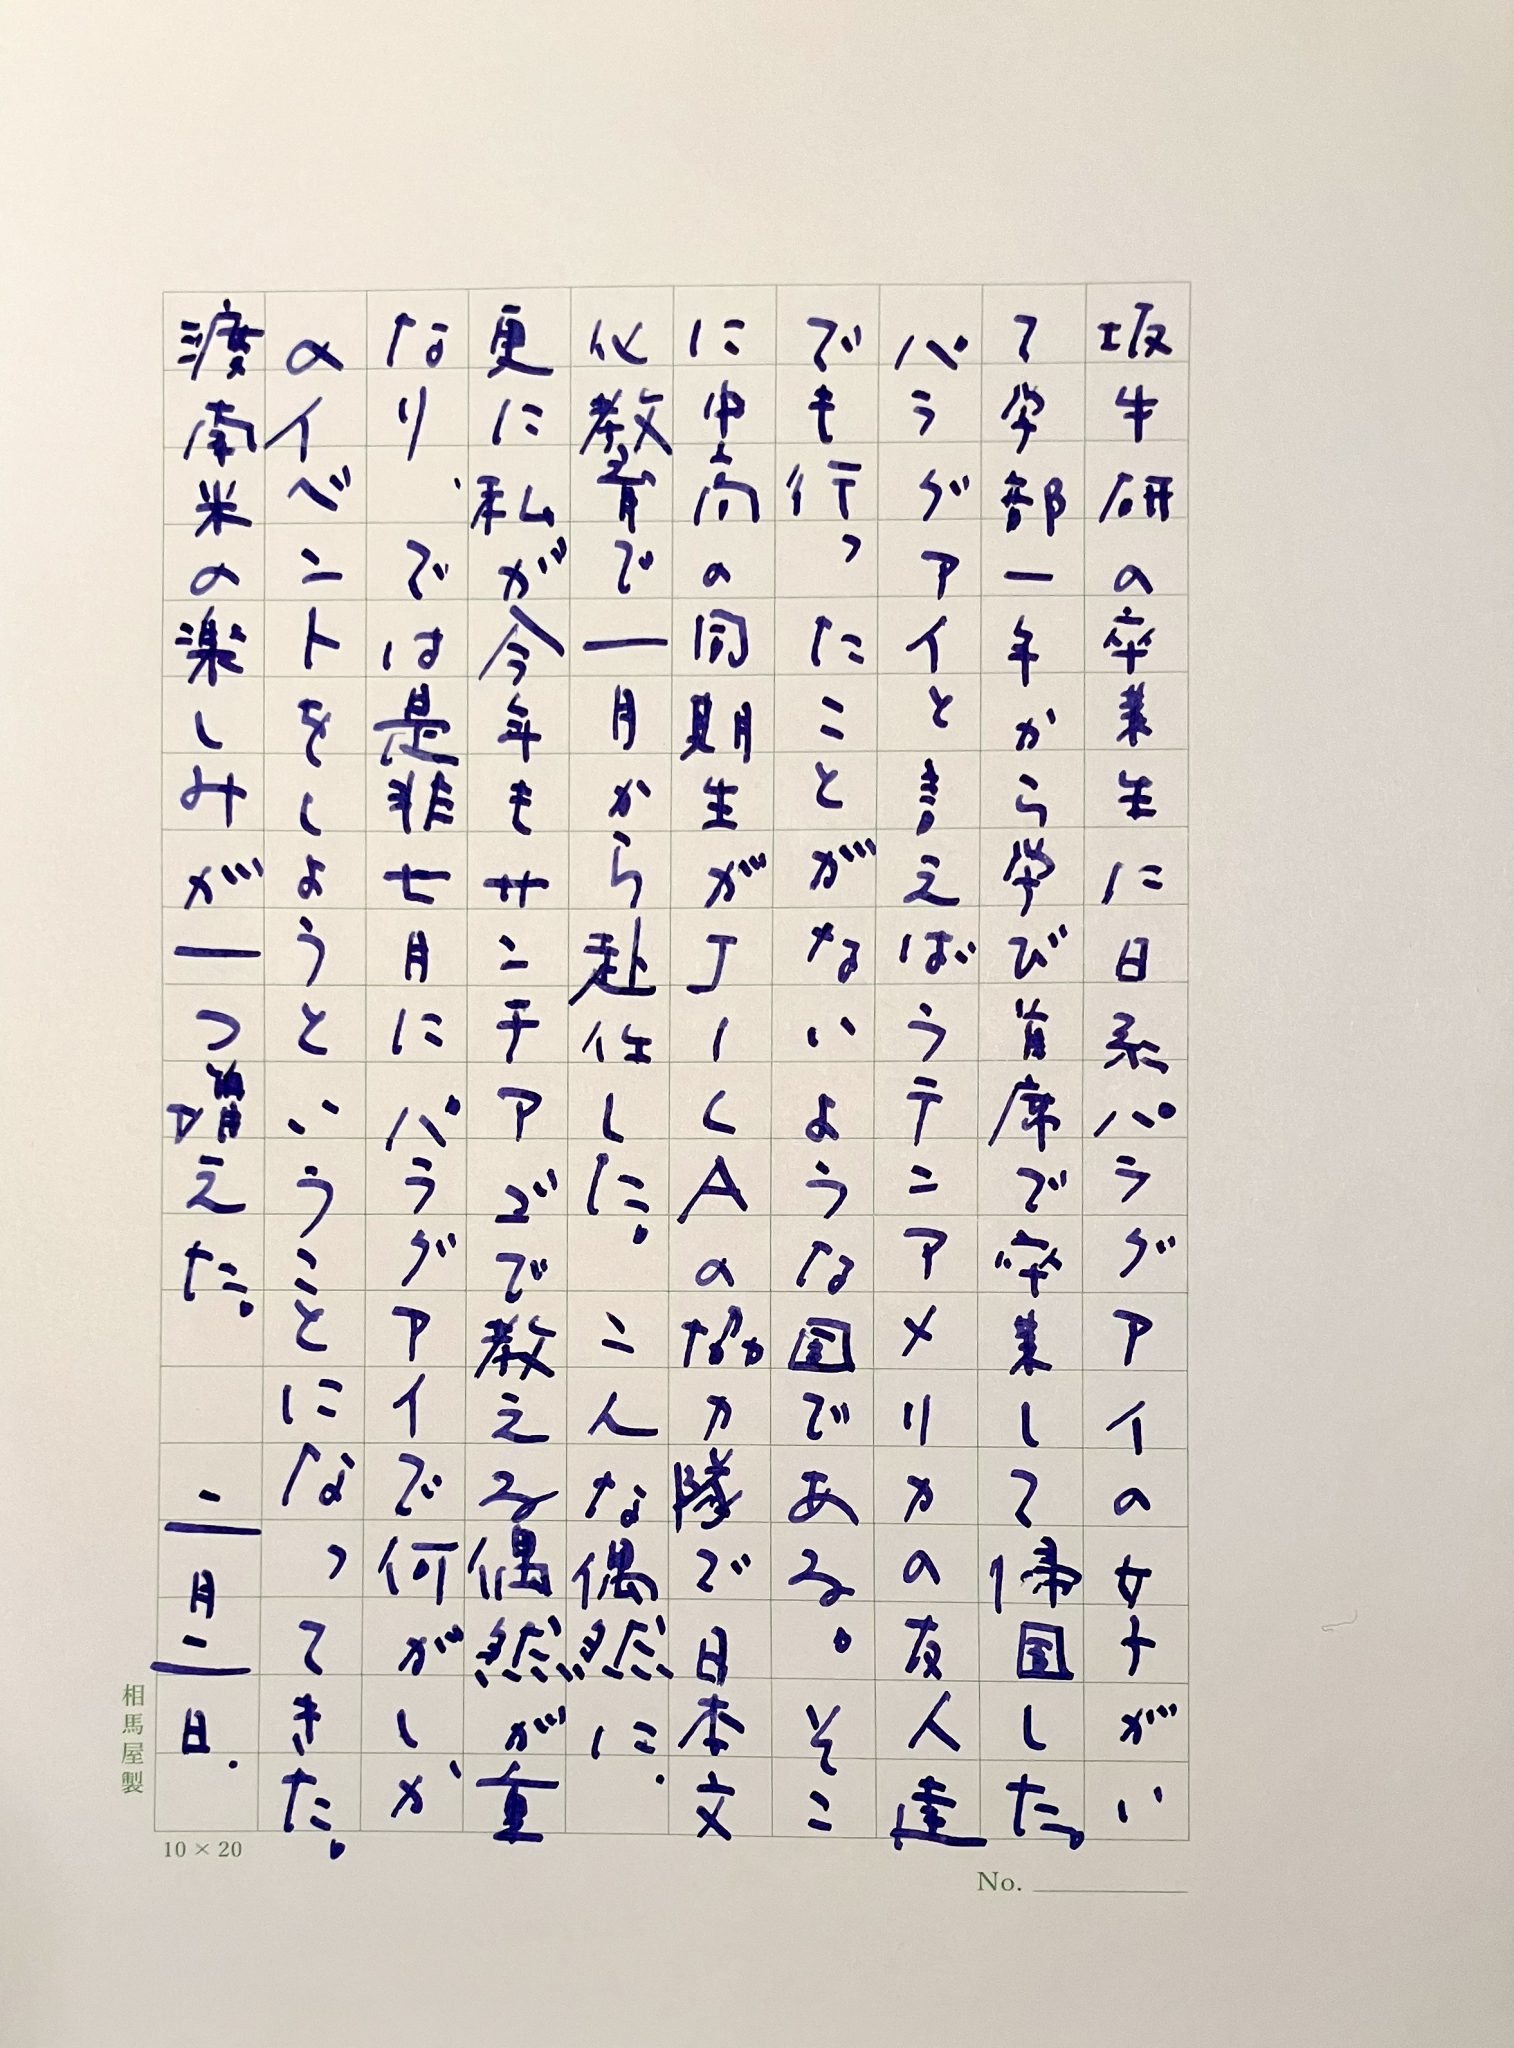 坂牛研の卒業生に日系パラグアイの女子がい
て学部一年から学び首席で卒業して帰国した。
パラグアイと言えばラテンアメリカの友人達
でも行ったことがないような国である。そこ
に中高の同期生がJICAのなんか隊で日本文
化教育で一月から赴任した。こんな偶然に、
更に私が今年もサンチアゴで教える偶然が重
なり、では是非七月にパラグアイで何がしか
のイベントをしようということになってきた。
渡南米の楽しみが一つ増えた。 二月二日.
相馬屋製
10 × 20
No.